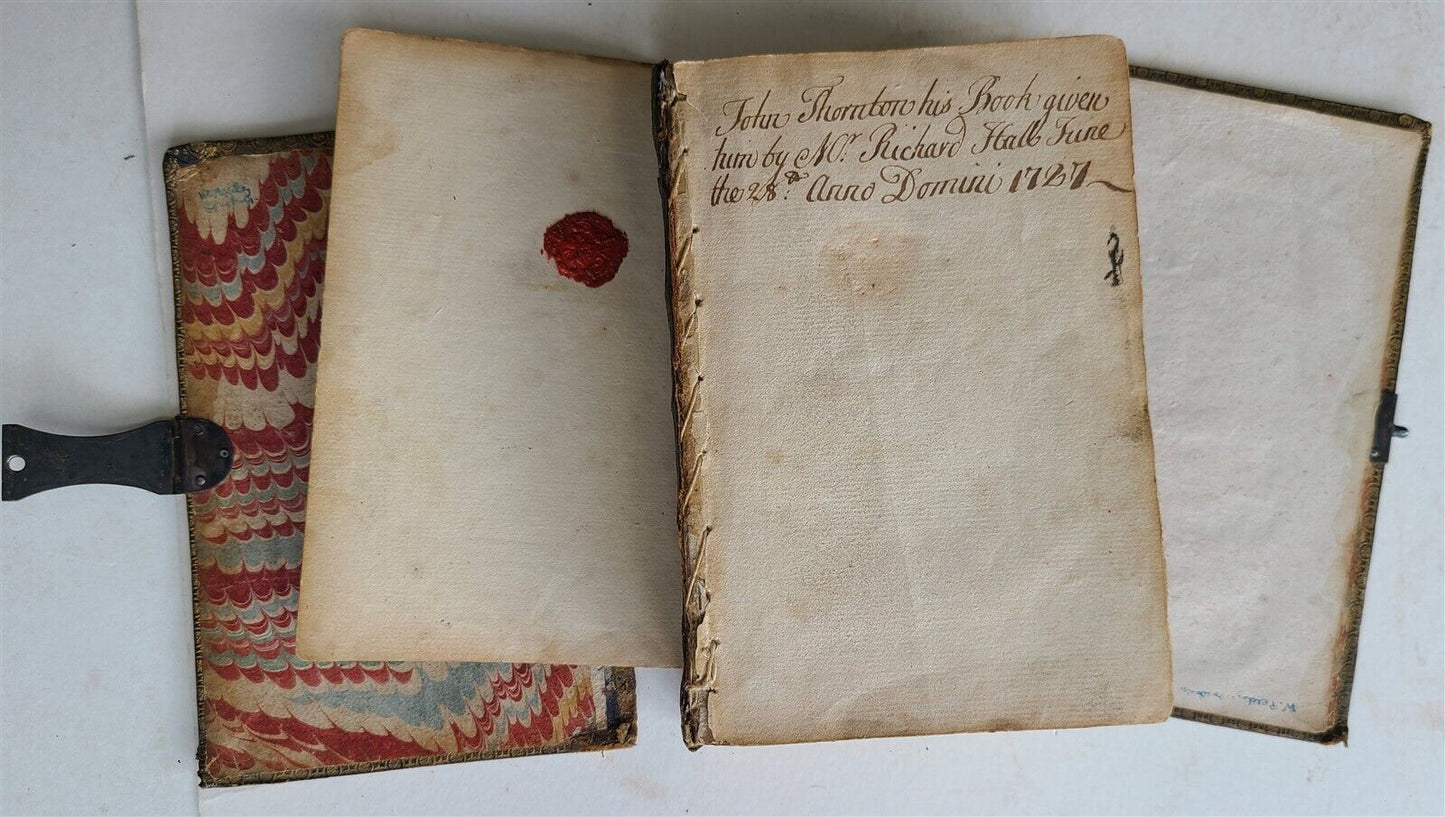 John Thornton his Book given
him by Mr. Richard Hall June
the 28th. Anno Domini 1727